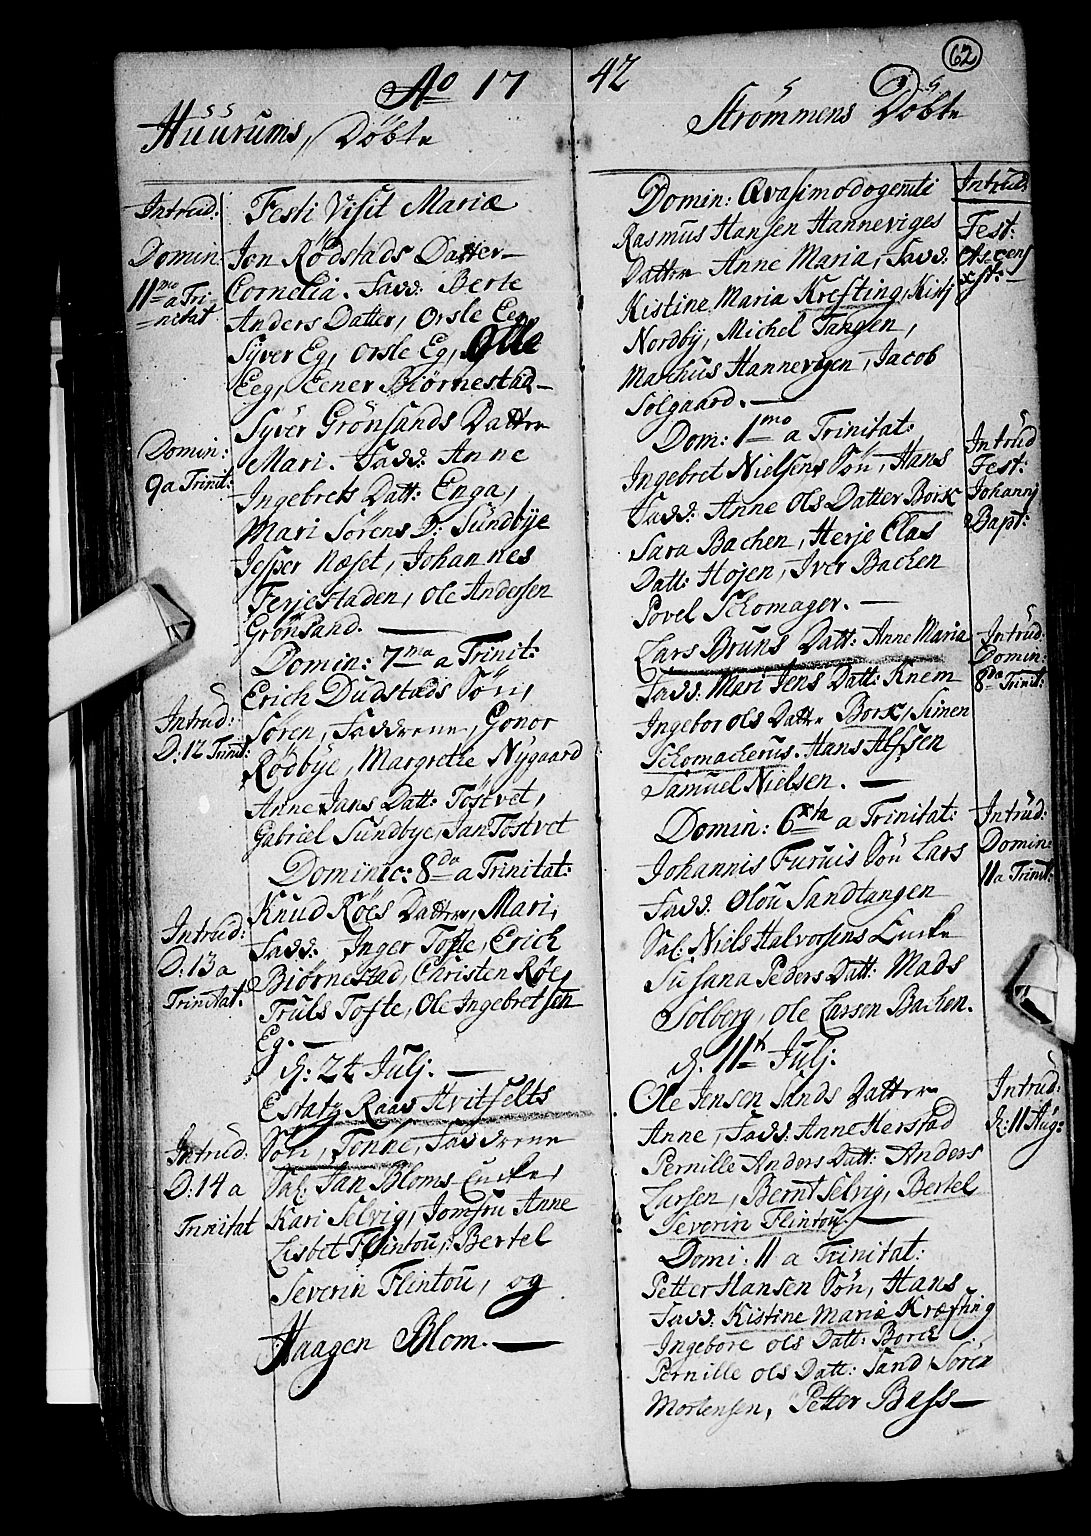 62
Ao 17 42
Huurums, Döbte
Intrud:
Domin
11mo a Tri-
nitat
Domin:
9a Trinit:
Intrud:
D: 12 Trinit:
Intrud:
D: 13 a
Trinitat:
Intrud:
D: 14 a
Trinitat
Festi Visit Mariæ
Jon Rödstads Datter
Cornelia. Fadd: Berte
Anders Datter, Orsle Eeg
Syver Eg, Orsle Eg, Olle
Eeg, Eener Biörnestad
Syver Grönsands Datter
Mari. Fadd: Anne
Ingebrets Datt: Enga,
Mari Sörens D: Sundbye
Jesper Næset, Johannes
Ferjestaden, Ole Andersen
Grönsand.
Domin: 7ma a Trinit:
Erich Dudstads Sön,
Sören, Fadderene, Gonor
Rödbye, Margrethe Nygaard
Anne Jans Datt: Töstvet,
Gabriel Sundbye, Jan Töstvet
Dominic: 8da a Trinitat:
Knud Röes Datter, Mari,
Fadd: Inger Tofte, Erich
Biörnestad, Christen Röe,
Truls Tofte, Ole Ingebretsen
Eg.
d. 24 Julj.
Estatz Raad Hvitfelts
Sön, Tönne, Fadderene
Sal: Jan Bloms Encke,
Kari Selvig, Jomfru Anne
Lisbet Flintou, Bertel
Severin Flintou, og
Haagen Blom.
Strömmens Döbte
Domin: Qvasimodogeniti
Rasmus Hansen Hanneviges
Datter Anne Maria, Fadd:
Kistine Maria Krefting, Kirj
Nordby, Michel Tangen,
Marchus Hannevigen, Jacob
Solgaard.
Dom: 1mo a Trinitat:
Ingebret Nielsens Sön, Hans
Fadd: Anne Ols Datter Bork
Sara Bachen, Herje Elas
Datt: Höjen, Iver Bachen
Povel Schomager.
Lars Bruns Datt: Anne Maria
Fadd: Mari Jens Datt: Knem
Ingebor Ols Datter Bork, Simen
Schomacherus. Hans Alfsen
Samuel Nielsen.
Domin: 6xta a Trinitat:
Johannis Furuis Sön Lars
Fadd: Olou Sandtangen
Sal: Niels Halvorsens Encke
Susana Peders Datt: Mads
Solberg, Ole Larsen Bachen.
d. 11t Julj:
Ole Jensen Sands Datter
Anne, Fadd: Anne Herstad
Pernille Anders Datt: Anders
Larsen, Bernt Selvig, Bertel
Severin Flintou.
Domi: 11 a Trinitat:
Petter Hansen Sön, Hans
Fadd: Kistine Maria Kræfting
Ingeborg Ols Datt: Borck
Pernille Ols Datt: Sand Sören
Mortensen, Petter Bess
Intrud:
Fest:
Xst:
Intrud
Fest:
Johannj
Bapt:
Intrud:
Domin:
8da Trinit:
Intrud:
Domin:
11 a Trinit:
Intrud:
d: 11 Aug: